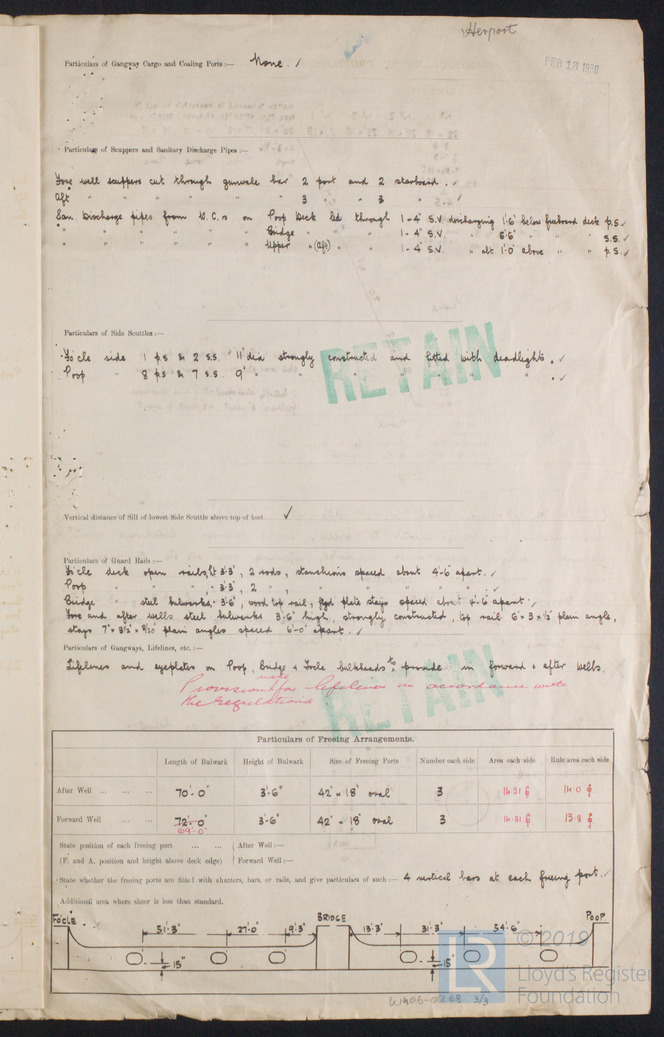 Herport
FEB 18 1930
Particulars of Gangway Cargo and Coaling Ports :— None. ✓
Particulars of Scuppers and Sanitary Discharge Pipes :—
Fore well scuppers cut through gunwale bar 2 port and 2 starboard. ✓
Aft " " " " " " 3 " " 3 " ✓
San. Discharge pipes from W.C.s on Poop Deck led through 1 - 4" S.V. discharging 1'6" below freeboard deck p.s. ✓
" " " " " " Bridge " " " 1 - 4" S.V. " 6'6" " " " s.s. ✓
" " " " " " Upper " (Aft) " " 1 - 4" S.V. " abt 1'0" above " " p.s. ✓
Particulars of Side Scuttles :—
Fo'cle side 1 p.s & 2 s.s. 11" dia strongly constructed and fitted with deadlights. ✓
Poop " 8 p.s & 7 s.s. 9" " " " " " " " . ✓
RETAIN
Vertical distance of Sill of lowest Side Scuttle above top of keel ✓
Particulars of Guard Rails :—
Fo'cle deck open rails, ht 3'3", 2 rods, stanchions spaced about 4'-6" apart. ✓
Poop " " " , " 3'3", 2 " , " " " " " ✓
Bridge " steel bulwarks, 3'6", wood top rail, flgd plate stays spaced about 4'-6" apart ✓
Fore and after wells steel bulwarks 3'6" high, strongly constructed, top rail 6" × 3 × ½" plain angle,
stays 7" × 3½" × 8/20" plain angles spaced 6'-0" apart. ✓
Particulars of Gangways, Lifelines, etc. :—
Lifelines and eyeplates on Poop, Bridge & Focle bulkheads to provide in forward & after wells.
Provision made for lifelines in accordance with
the regulations
RETAIN
Particulars of Freeing Arrangements.
Length of Bulwark Height of Bulwark Size of Freeing Ports Number each side Area each side Rule area each side
After Well ... ... ... 70'-0" 3'-6" 42" × 18" oval 3 14.31 14.0
Forward Well ... ... 72'-0" 3'-6" 42" × 18" oval 3 14.31 13.8
69'-0"
State position of each freeing port ... ... After Well :—
(F. and A. position and height above deck edge) Forward Well :—
State whether the freeing ports are fitted with shutters, bars, or rails, and give particulars of such :— 4 vertical bars at each freeing port. ✓
Additional area where sheer is less than standard.
FOCLE BRIDGE POOP
51'-3" 27'-0" 9'-3" 13'-3" 31'-3" 54'-6"
15" 15"
© 2019
LR
Lloyd's Register
Foundation
W406-0268 3/3